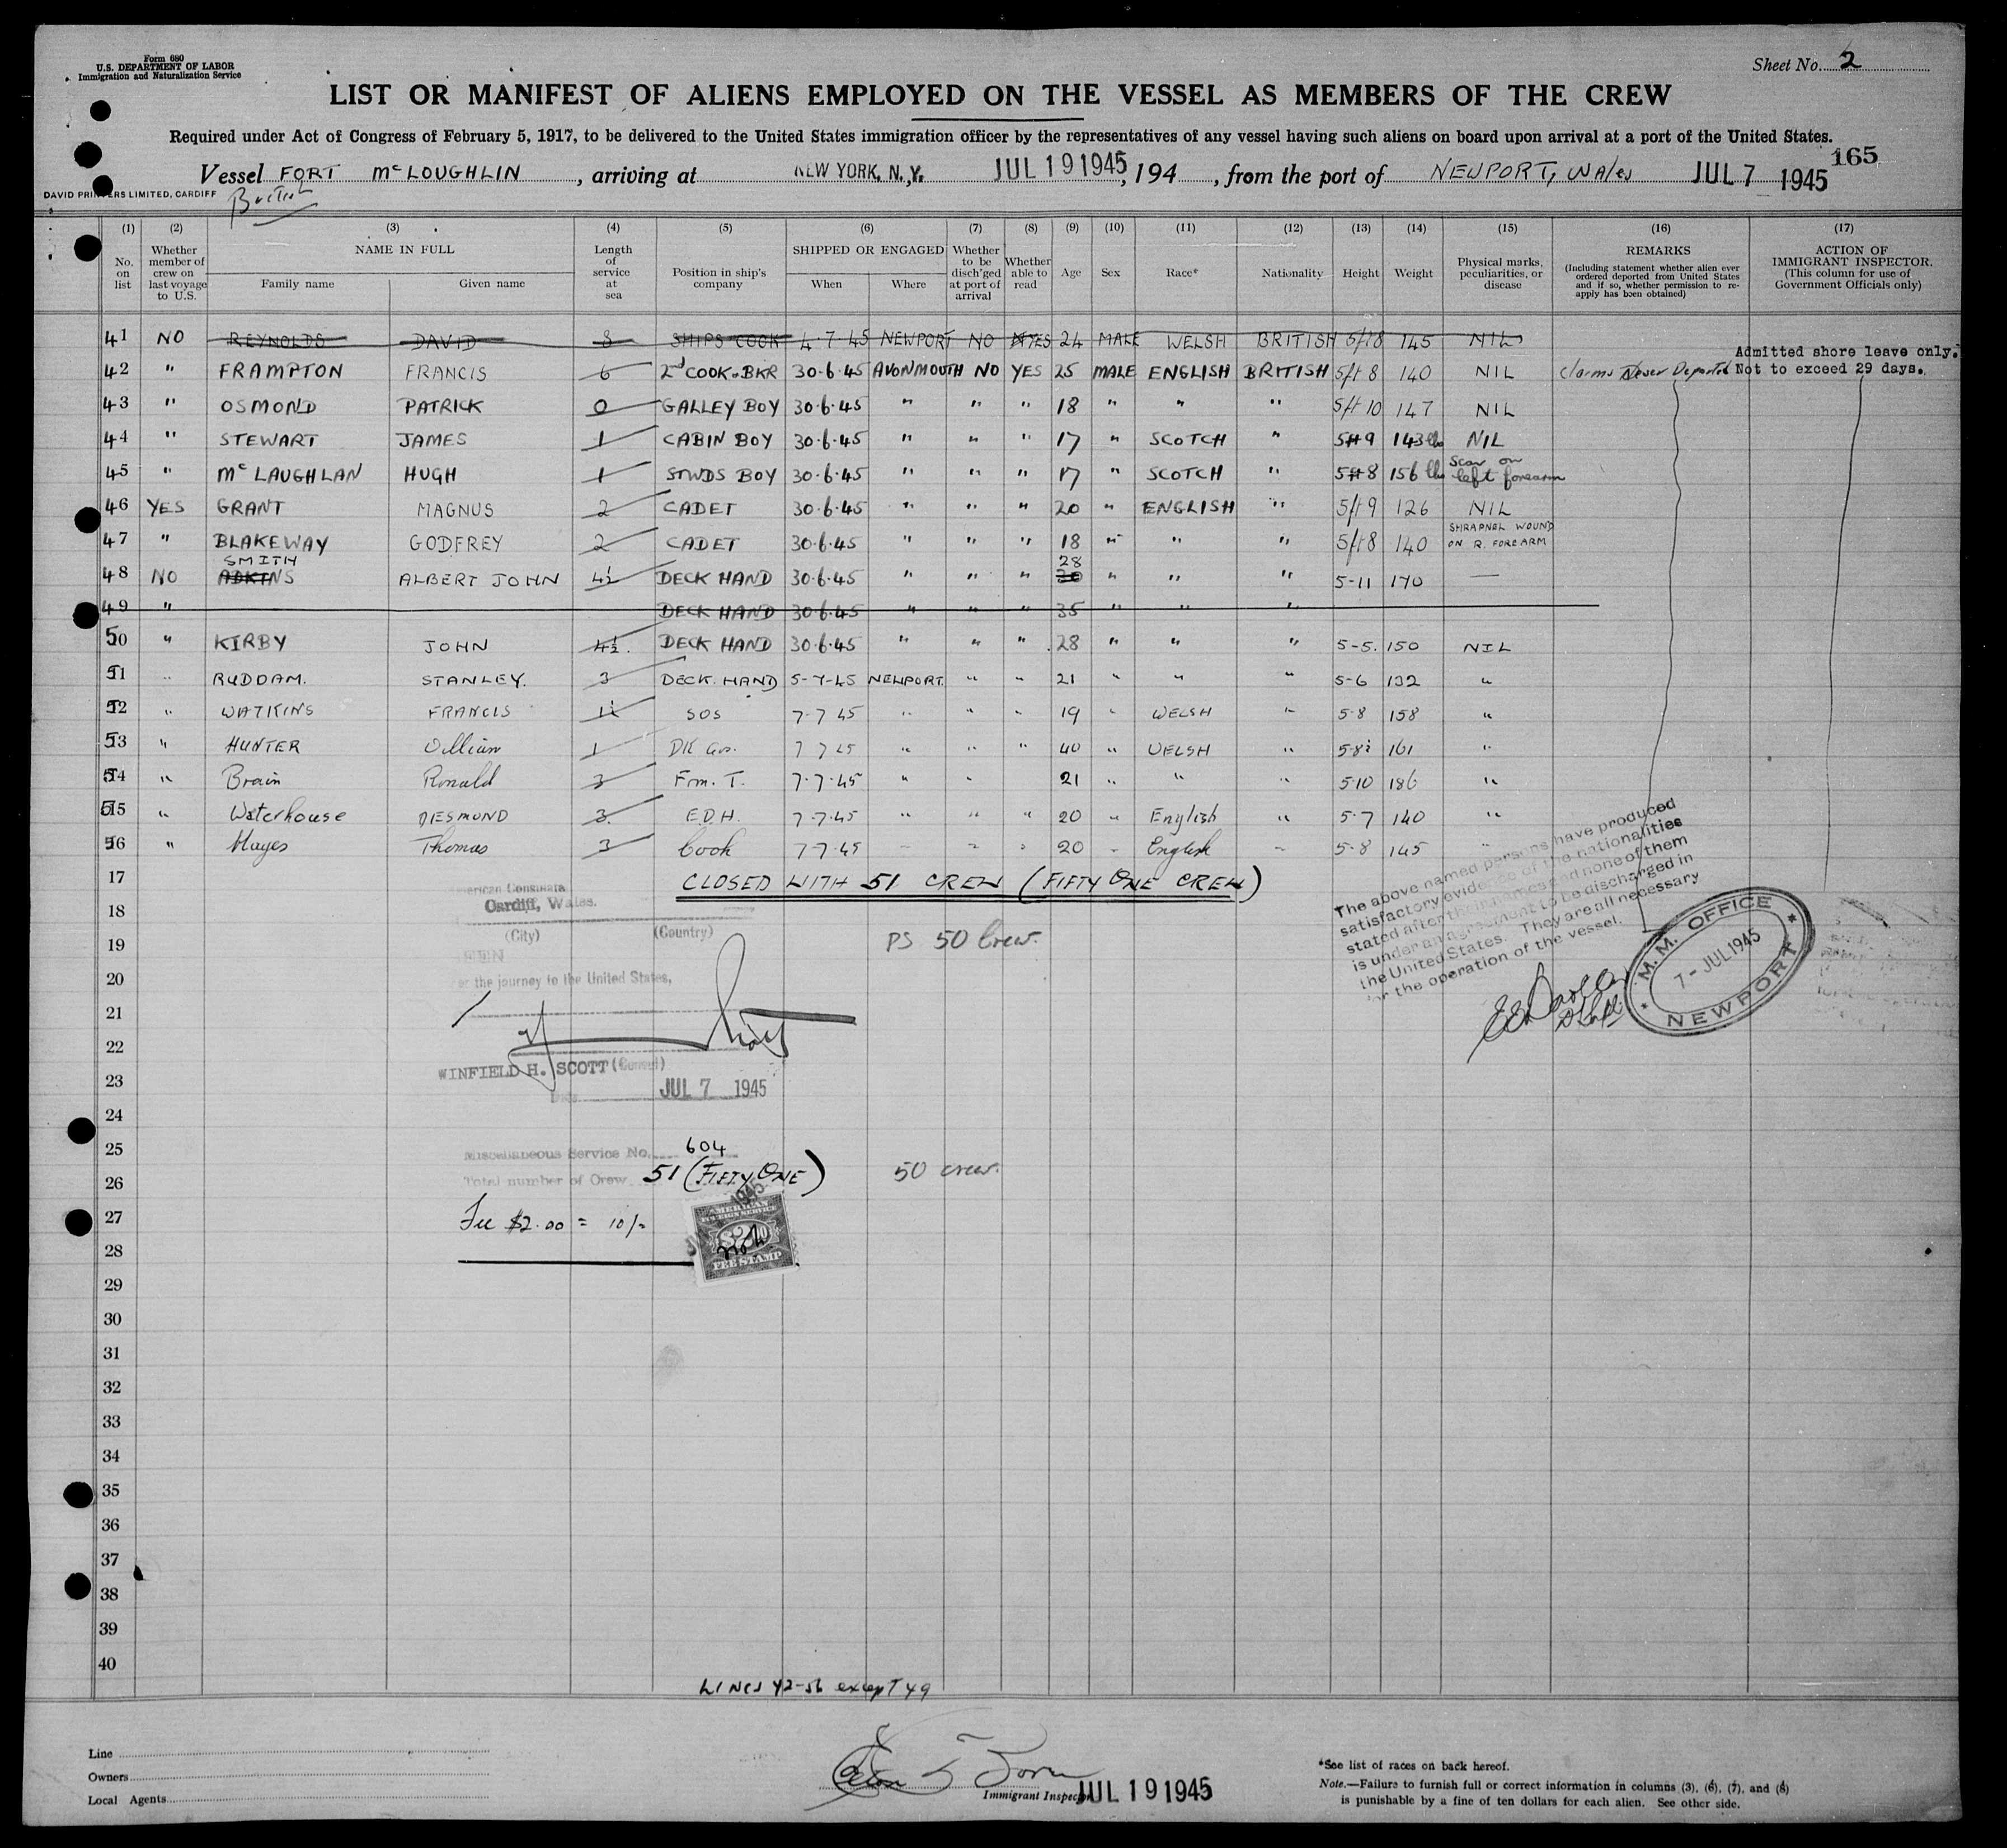 Form 680
U.S. DEPARTMENT OF LABOR
Immigration and Naturalization Service
Sheet No. 2
LIST OR MANIFEST OF ALIENS EMPLOYED ON THE VESSEL AS MEMBERS OF THE CREW
Required under Act of Congress of February 5, 1917, to be delivered to the United States immigration officer by the representatives of any vessel having such aliens on board upon arrival at a port of the United States.
165
Vessel FORT McLOUGHLIN, arriving at NEW YORK, N.Y. JUL 19 1945, 194 , from the port of NEWPORT, WALES JUL 7 1945
DAVID PRINTERS LIMITED, CARDIFF
British
(1) (2) (3) (4) (5) (6) (7) (8) (9) (10) (11) (12) (13) (14) (15) (16) (17)
No. on list
Whether member of crew on last voyage to U.S.
NAME IN FULL
Family name
Given name
Length of service at sea
Position in ship's company
SHIPPED OR ENGAGED
When
Where
Whether to be disch'ged at port of arrival
Whether able to read
Age
Sex
Race*
Nationality
Height
Weight
Physical marks, peculiarities, or disease
REMARKS
(Including statement whether alien ever ordered deported from United States and if so, whether permission to re-apply has been obtained)
ACTION OF IMMIGRANT INSPECTOR.
(This column for use of Government Officials only)
41 NO REYNOLDS DAVID 8 SHIPS COOK 4.7.45 NEWPORT NO YES 24 MALE WELSH BRITISH 5ft8 145 NIL
Admitted shore leave only.
42 " FRAMPTON FRANCIS 6 2nd COOK.BKR 30.6.45 AVONMOUTH NO YES 25 MALE ENGLISH BRITISH 5ft 8 140 NIL Claims Never Deported Not to exceed 29 days.
43 " OSMOND PATRICK 0 GALLEY BOY 30.6.45 " " " 18 " " " 5ft 10 147 NIL
44 " STEWART JAMES 1 CABIN BOY 30.6.45 " " " 17 " SCOTCH " 5ft 9 143 lbs NIL
45 " McLAUGHLAN HUGH 1 STWDS BOY 30.6.45 " " " 17 " SCOTCH " 5ft 8 156 lbs Scar on left forearm
46 YES GRANT MAGNUS 2 CADET 30.6.45 " " " 20 " ENGLISH " 5ft 9 126 NIL
47 " BLAKEWAY GODFREY 2 CADET 30.6.45 " " " 18 " " " 5ft 8 140 SHRAPNEL WOUND ON R. FOREARM
SMITH 28
48 NO ADKINS ALBERT JOHN 4½ DECK HAND 30.6.45 " " " " " " 5-11 170 —
49 " DECK HAND 30.6.45 " " " 35 " " "
50 " KIRBY JOHN 4½ DECK HAND 30.6.45 " " " 28 " " " 5-5. 150 NIL
51 " RUDDAM. STANLEY. 3 DECK. HAND 5-7-45 NEWPORT. " " 21 " " " 5-6 132 "
52 " WATKINS FRANCIS 1½ SOS 7-7 45 " " " 19 " WELSH " 5.8 158 "
53 " HUNTER William 1 7 7 45 " " " 40 " WELSH " 5.8½ 161 "
54 " Brain Ronald 3 Frm. T. 7.7.45 " " 21 " " " 5.10 186 "
55 " Waterhouse DESMOND 3. E.D.H. 7-7.45 " " " 20 " English " 5.7 140 "
56 " Hayes Thomas 3 Cook 7-7.45 " " " 20 " English " 5.8 145 "
17 CLOSED WITH 51 CREW (FIFTY ONE CREW)
American Consulate
18 Cardiff, Wales.
(City) (Country)
19 PS 50 Crew.
20 for the journey to the United States,
21
22
WINFIELD H. SCOTT (Consul)
23 Date JUL 7 1945
24
The above named persons have produced
satisfactory evidence of the nationalities
stated after their names and none of them
is under an agreement to be discharged in
the United States. They are all necessary
for the operation of the vessel.
M.M. OFFICE
7 - JUL 1945
NEWPORT
25 Miscellaneous Service No. 604
26 Total number of Crew 51 (FIFTY ONE) 50 crew.
27 Fee $2.00 = 10/-
AMERICAN
FOREIGN SERVICE
$2.00
FEE STAMP
28
29
30
31
32
33
34
35
36
37
38
39
40
LINES 42-56 except 49
Line
Owners
Local Agents
Immigrant Inspector JUL 19 1945
*See list of races on back hereof.
Note.—Failure to furnish full or correct information in columns (3), (6), (7), and (8)
is punishable by a fine of ten dollars for each alien. See other side.